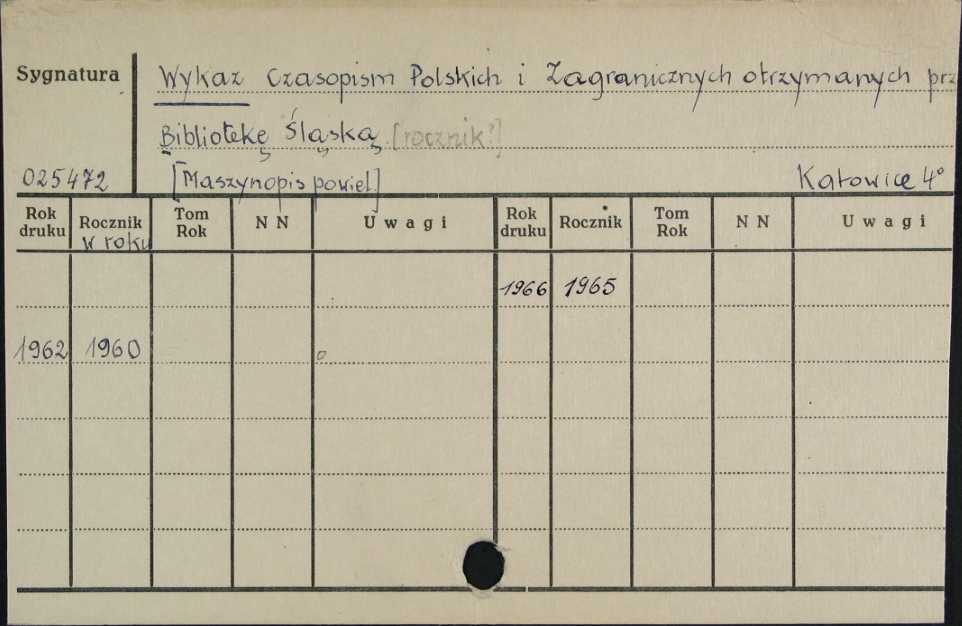 Sygnatura Wykaz Czasopism Polskich i Zagranicznych otrzymanych prz
Bibliotekę Śląską [rocznik?]
025472 [Maszynopis powiel.] Katowice 4°
Rok druku Rocznik w roku Tom Rok N N Uwagi Rok druku Rocznik Tom Rok N N Uwagi
1966 1965
1962 1960